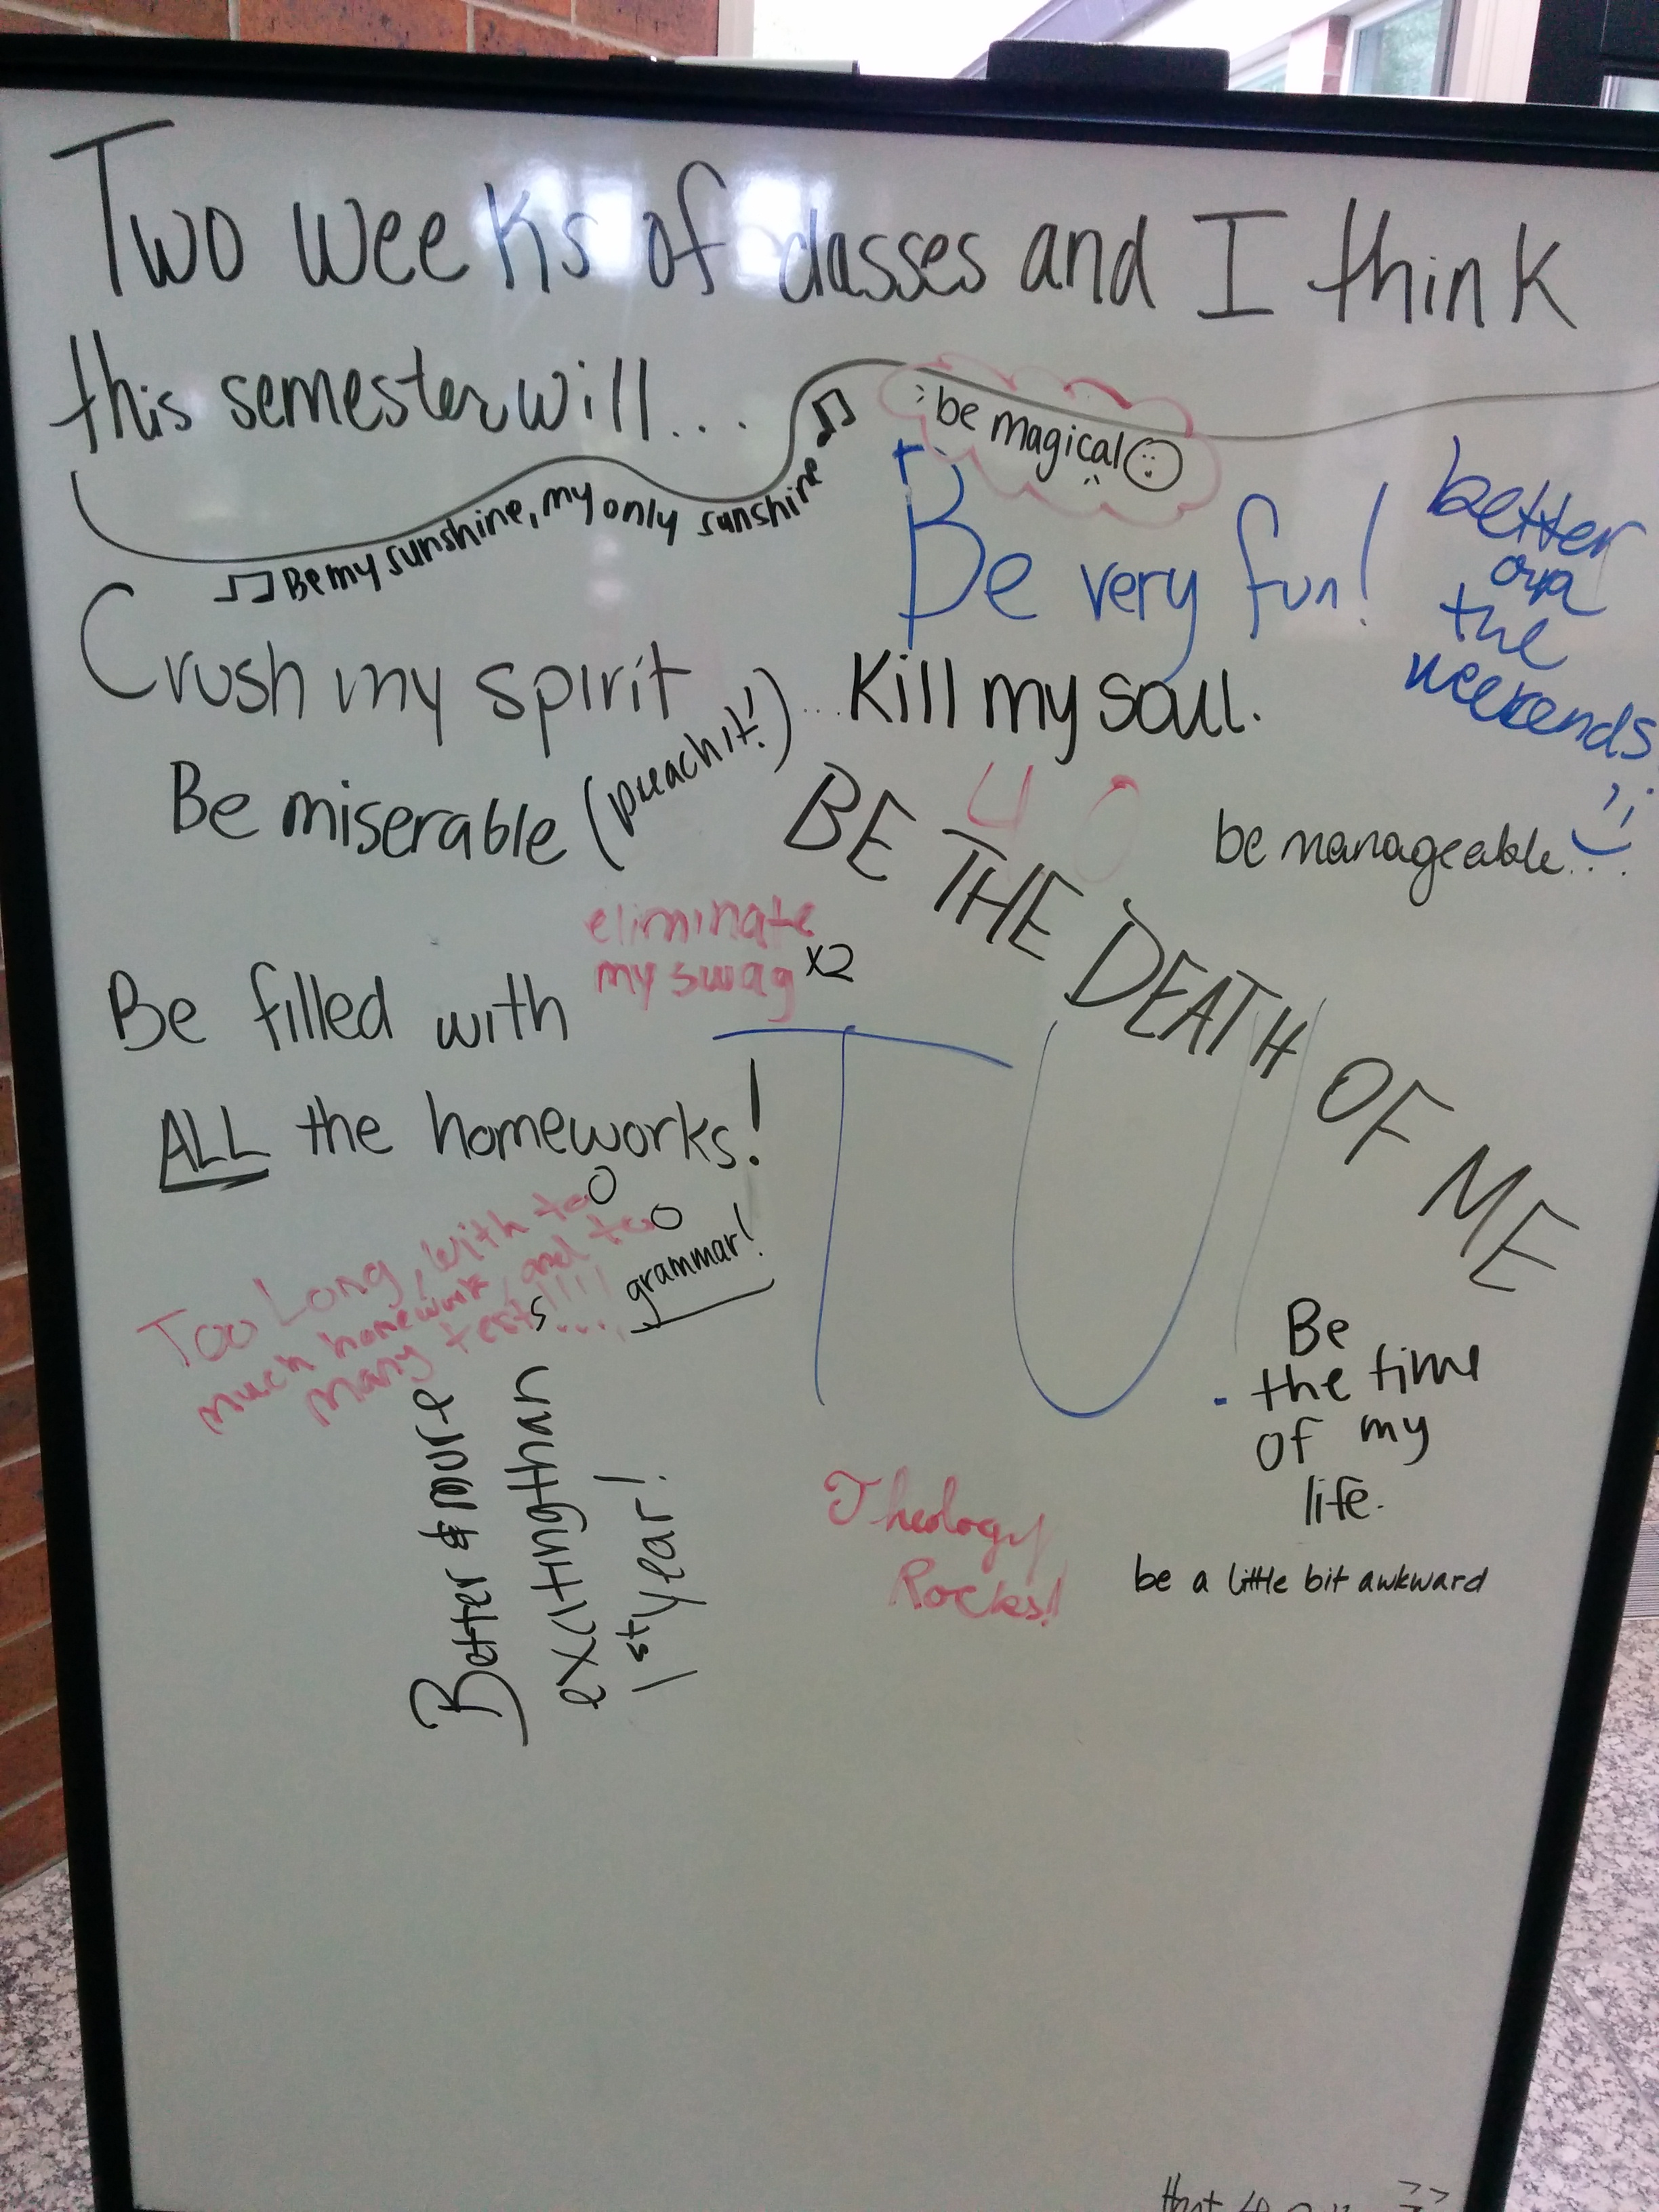 Two weeks of classes and I think
this semester will...
be magical
♫ Be my sunshine, my only sunshine ♫
Be very fun!
better
on
the
weekends
Crush my spirit
...Kill my soul.
Be miserable (preach it!)
BE THE DEATH OF ME
be manageable...
eliminate
my swag x2
Be filled with
ALL the homeworks!
TU
Too Long, with too
much homework, and too
many tests!!!!...
grammar!
Better & more
exciting than
1st year!
Be
the time
of my
life.
Theology
Rocks!
be a little bit awkward
that